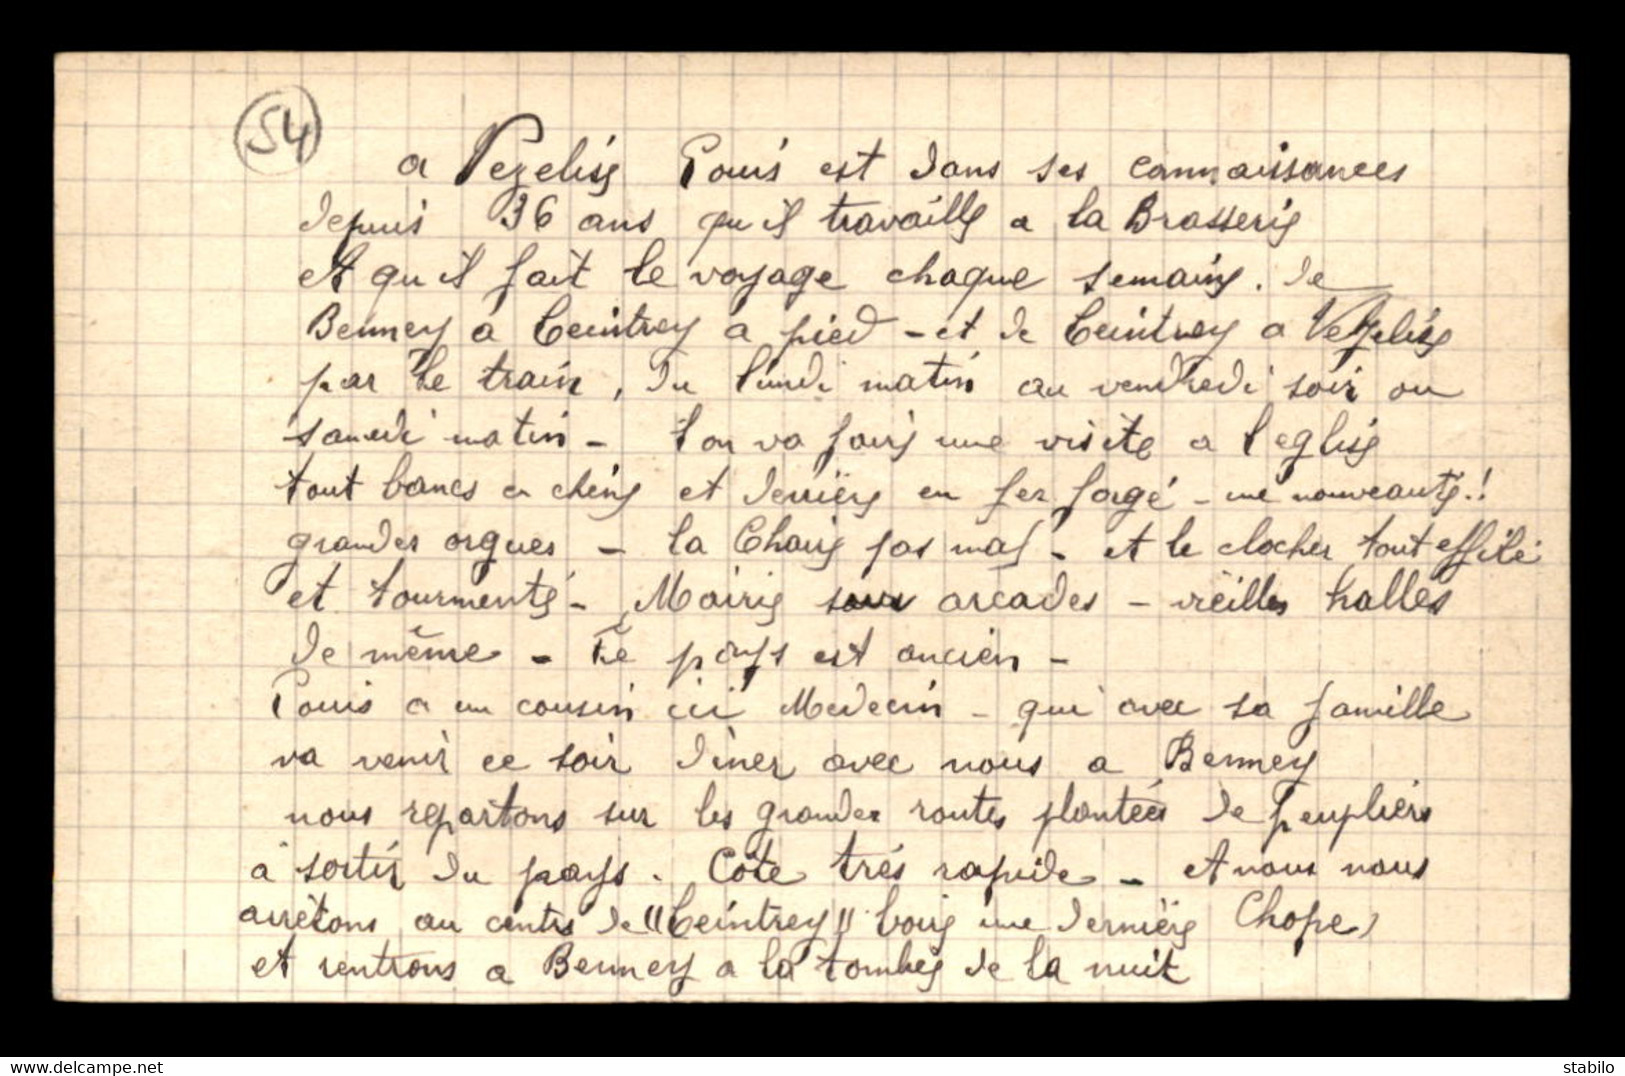 54
a Vezelise Louis est dans ses connaissances
depuis 36 ans qu'il travaille a la Brasserie
et qu'il fait le voyage chaque semaine. de
Benney a Ceintrey a pied - et de Ceintrey a Vezelise
par le train, du lundi matin au vendredi soir ou
samedi matin - l'on va faire une visite a l'eglise
tout bancs en chêne et derrière en fer forgé - une nouveauté.!
grandes orgues - la Chaire pas mal - et le clocher tout effilé
et tourmenté - Mairie sous arcades - vieilles halles
de même - Le pays est ancien -
Louis a un cousin ici Medecin - qui avec sa famille
va venir ce soir diner avec nous a Benney
nous repartons sur les grandes routes plantées de peupliers
à sortir du pays. Côte très rapide - et nous nous
arrêtons au centre de "Ceintrey" boire une dernière Chope,
et rentrons a Benney a la tombée de la nuit
stabilo